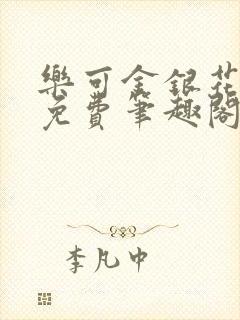 樂可金銀花
免費筆趣閣
李凡中